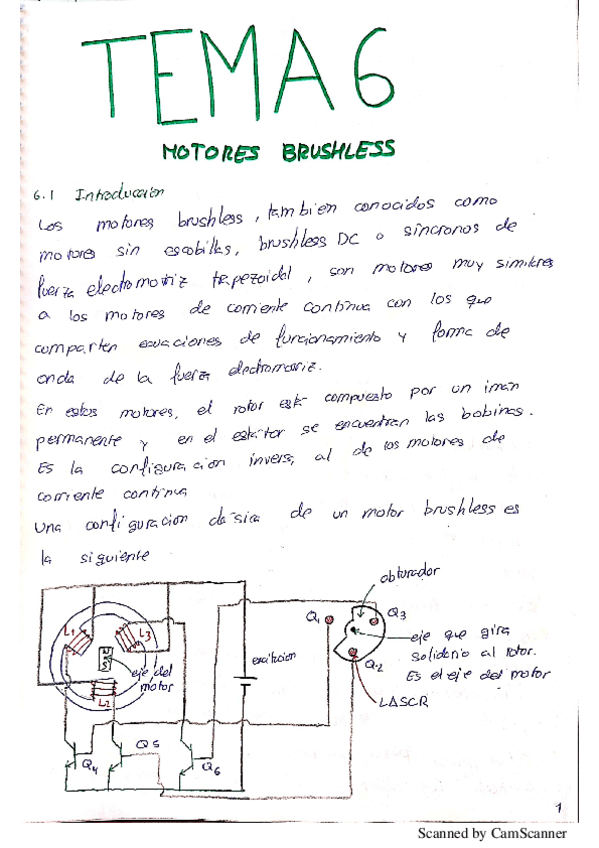 TEMA 6
MOTORES BRUSHLESS
6.1 Introducción
Los motores brushless, tambien conocidos como
motores sin escobillas, brushless DC o síncronos de
fuerza electromotriz trapezoidal, son motores muy similares
a los motores de corriente continua con los que
comparten ecuaciones de funcionamiento y forma de
onda de la fuerza electromotriz.
En estos motores, el rotor está compuesto por un iman
permanente y en el estátor se encuentran las bobinas.
Es la configuracion inversa al de los motores de
corriente continua
Una configuracion clasica de un motor brushless es
la siguiente
obturador
L1
L3
N
S
eje del
motor
L2
excitacion
Q1
Q3
Q2
eje que gira
solidario al rotor.
Es el eje del motor
LASCR
Q4
Q5
Q6
1
Scanned by CamScanner